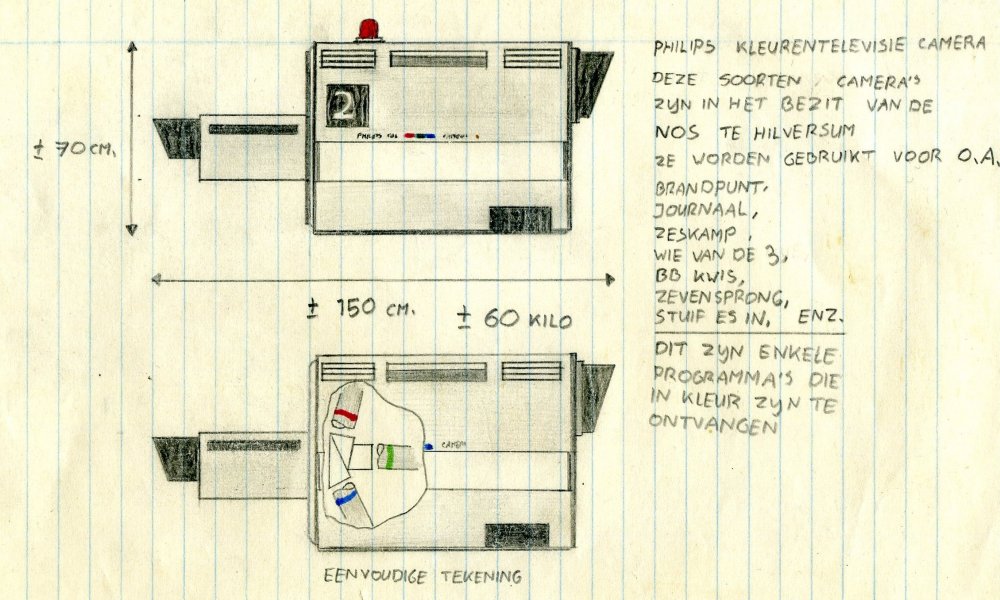 PHILIPS KLEURENTELEVISIE CAMERA
DEZE SOORTEN CAMERA'S
ZIJN IN HET BEZIT VAN DE
NOS TE HILVERSUM
ZE WORDEN GEBRUIKT VOOR O.A.
BRANDPUNT,
JOURNAAL,
ZESKAMP,
WIE VAN DE 3,
BB KWIS,
ZEVENSPRONG,
STUIF ES IN, ENZ.
DIT ZIJN ENKELE
PROGRAMMA'S DIE
IN KLEUR ZIJN TE
ONTVANGEN
2
PHILIPS CAMERA
± 70 CM.
± 150 CM. ± 60 KILO
CAMERA
EENVOUDIGE TEKENING